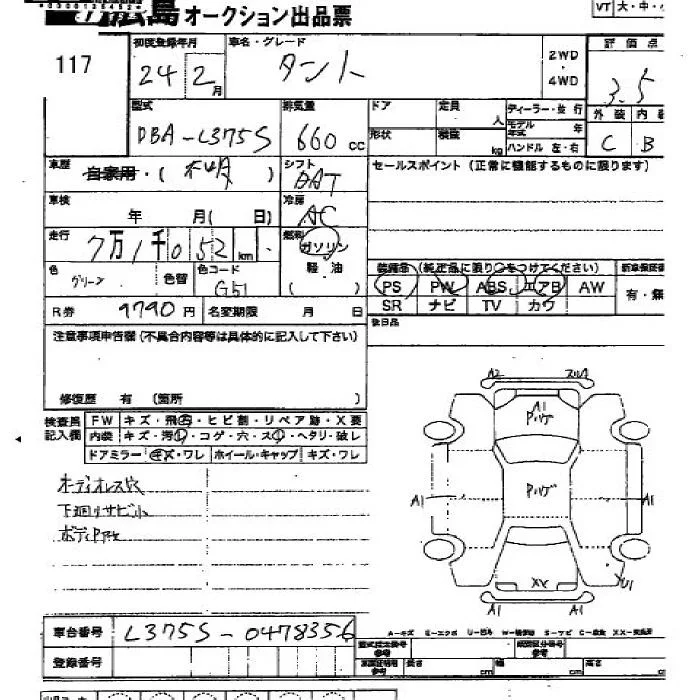 広島オークション出品票
VT 大・中・小
117
初度登録年月
24 2月
車名・グレード
タント
2WD
・
4WD
評価点
3.5
型式
DBA-L375S
排気量
660 cc
ドア
定員
人
ディーラー・並行
モデル年式 年
形状
積載
kg
ハンドル 左・右
外装 内装
C B
車歴
自家用・( )
シフト
セールスポイント(正常に機能するものに限ります)
車検
年 月( 日)
冷房
AC
走行
7万1千052km
燃料
ガソリン
軽油
( )
色
グリーン
色替
色コード
G51
装備品(純正品に限り○をつけてください)
PS PW ABS エアB AW
SR ナビ TV カワ
新車保証書
有・無
R券 9790円
名変期限 月 日
後日品
注意事項申告欄(不具合内容等は具体的に記入して下さい)
修復歴 有(箇所 )
検査員記入欄
FW キズ・飛石・ヒビ割・リペア跡・X要
内装 キズ・汚れ・コゲ・穴・スレ・ヘタリ・破レ
ドアミラー キズ・ワレ ホイール・キャップ キズ・ワレ
オーディオレス穴
下廻りサビ小
A2
A1
A1
A1
XX
A1
A1
車台番号 L375S-0478356
登録番号
A-キズ
長さ cm 幅 cm 高さ